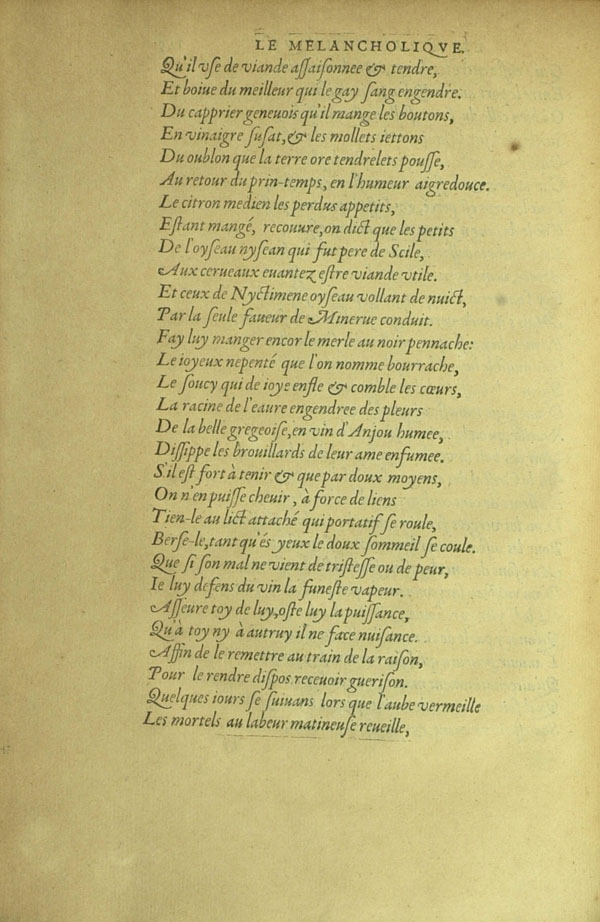 LE MELANCHOLIQVE.
Qu'il vſe de viande aſſaiſonnee & tendre,
Et boiue du meilleur qui le gay ſang engendre.
Du capprier geneuois qu'il mange les boutons,
En vinaigre ſuſat, & les mollets iettons
Du oublon que la terre ore tendrelets pouſſe,
Au retour du prin-temps, en l'humeur aigredouce.
Le citron medien les perdus appetits,
Eſtant mangé, recouure, on dict que les petits
De l'oyſeau nyſean qui fut pere de Scile,
Aux cerueaux euantez eſtre viande vtile.
Et ceux de Nyctimene oyſeau vollant de nuict,
Par la ſeule faueur de Minerue conduit.
Fay luy manger encor le merle au noir pennache:
Le ioyeux nepenté que l'on nomme bourrache,
Le ſoucy qui de ioye enfle & comble les cœurs,
La racine de l'eaure engendree des pleurs
De la belle gregeoiſe, en vin d'Anjou humee,
Diſſippe les brouillards de leur ame enfumee.
S'il eſt fort à tenir & que par doux moyens,
On n'en puiſſe cheuir, à force de liens
Tien-le au lict attaché qui portatif ſe roule,
Berſe-le, tant qu'és yeux le doux ſommeil ſe coule.
Que ſi ſon mal ne vient de triſteſſe ou de peur,
Ie luy defens du vin la funeſte vapeur.
Aſſeure toy de luy, oſte luy la puiſſance,
Qu'à toy ny à autruy il ne face nuiſance.
Affin de le remettre au train de la raiſon,
Pour le rendre diſpos receuoir gueriſon.
Quelques iours ſe ſuiuans lors que l'aube vermeille
Les mortels au labeur matineuſe reueille,